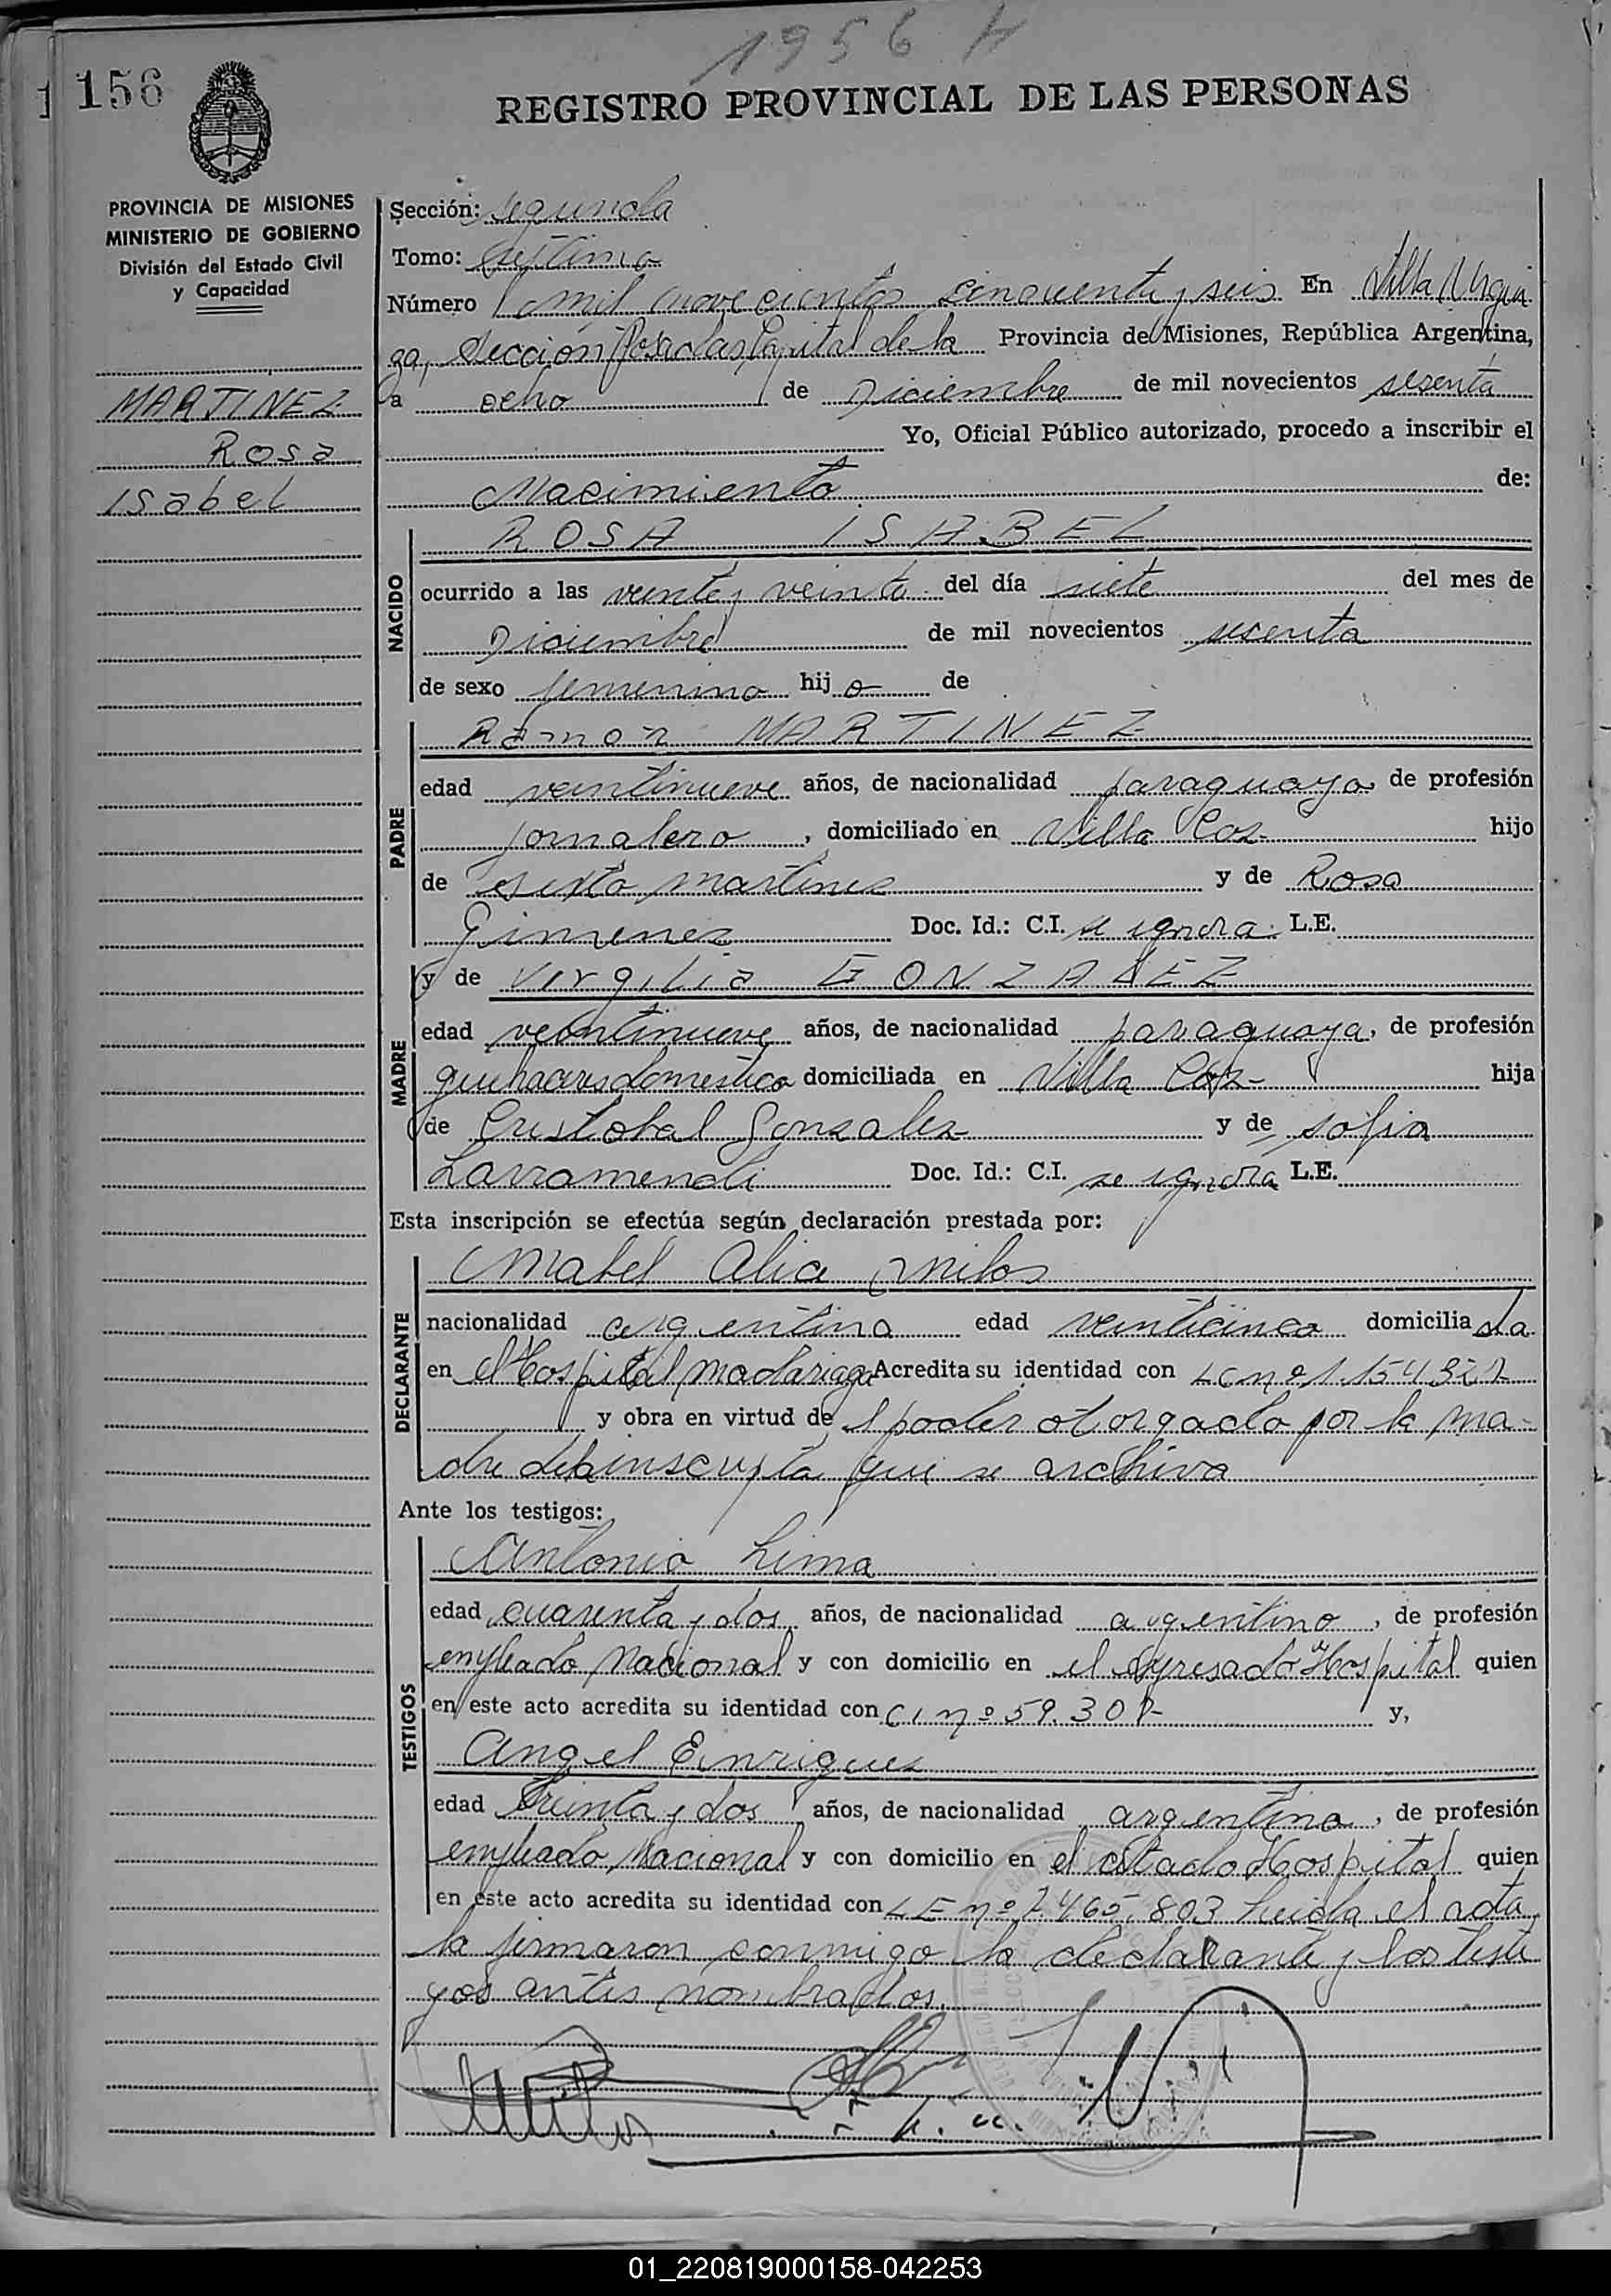 1956
156
REGISTRO PROVINCIAL DE LAS PERSONAS
PROVINCIA DE MISIONES
MINISTERIO DE GOBIERNO
División del Estado Civil
y Capacidad
MARTINEZ
Rosa
Isabel
Sección: Segunda
Tomo: Septimo
Número mil novecientos cincuenta y seis En Villa Urqui
za, Sección Posadas Capital de la Provincia de Misiones, República Argentina,
a ocho de Diciembre de mil novecientos sesenta
Yo, Oficial Público autorizado, procedo a inscribir el
Nacimiento de:
NACIDO
ROSA ISABEL
ocurrido a las veinte y veinte del día siete del mes de
Diciembre de mil novecientos sesenta
de sexo femenino hij a de
PADRE
Ramon MARTINEZ
edad veintinueve años, de nacionalidad paraguaya de profesión
jornalero, domiciliado en Villa hijo
de Martinez y de Rosa
Gimenez Doc. Id.: C.I. se ignora L.E.
MADRE
y de Virgilia GONZALEZ
edad veintinueve años, de nacionalidad paraguaya, de profesión
quehaceres domestico domiciliada en Villa hija
de Cristobal Gonzalez y de Sofia
Larramendi Doc. Id.: C.I. se ignora L.E.
Esta inscripción se efectúa según declaración prestada por:
DECLARANTE
Mabel Alicia Milos
nacionalidad argentina edad veinticinco domicilia da
en el Hospital Madariaga Acredita su identidad con LC nº 1.154.321
y obra en virtud de l poder otorgado por la ma-
dre de la inscripta que se archiva
Ante los testigos:
TESTIGOS
Antonio Lima
edad cuarenta y dos años, de nacionalidad argentino, de profesión
empleado Nacional y con domicilio en el expresado Hospital quien
en este acto acredita su identidad con CI nº 59.308- y,
Angel Enriques
edad treinta y dos años, de nacionalidad argentino, de profesión
empleado Nacional y con domicilio en el citado Hospital quien
en este acto acredita su identidad con LE nº 7.465.803 Leida el acta,
la firmaron conmigo la declarante y los testi
gos antes nombrados.
01_220819000158-042253